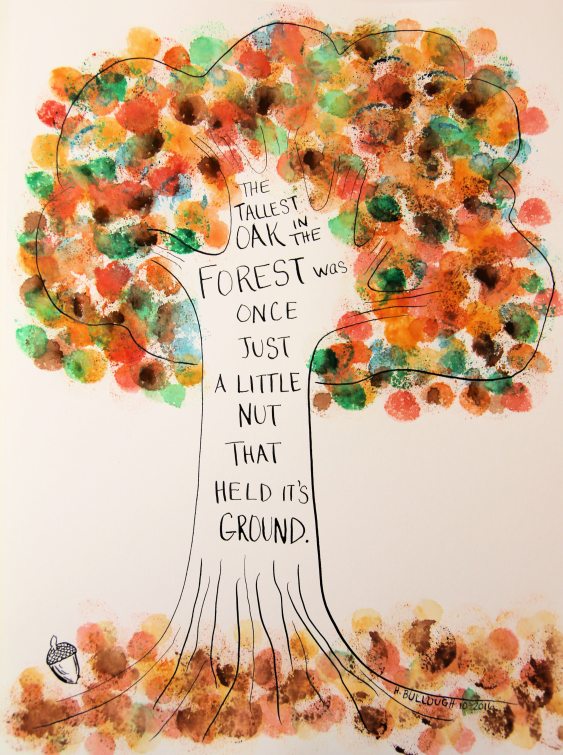 THE
TALLEST
OAK IN THE
FOREST was
ONCE
JUST
A LITTLE
NUT
THAT
HELD IT'S
GROUND.
H. BULLOUGH 10-2014